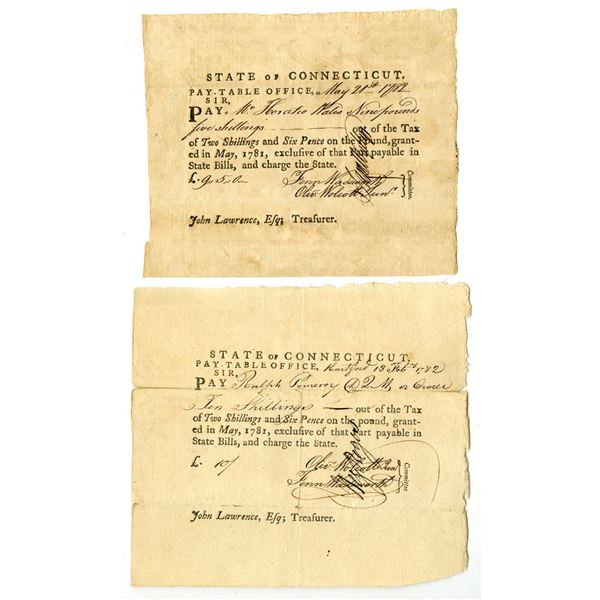 STATE OF CONNECTICUT.
PAY-TABLE OFFICE, May 21st 1782
SIR,
PAY Mr Horatio Wales Nine pound
five shillings out of the Tax
of Two Shillings and Six Pence on the Pound, grant-
ed in May, 1781, exclusive of that Part payable in
State Bills, and charge the State.
£. 9,,5,,0
Fenn Wadsworth
Olivr Wolcott Junr.
Committee.
John Lawrence, Esq; Treasurer.
STATE OF CONNECTICUT.
PAY-TABLE OFFICE, Hartford 13 Feby 1782
SIR,
PAY Ralph Pomeroy D Q M, or Order
Ten Shillings out of the Tax
of Two Shillings and Six Pence on the pound, grant-
ed in May, 1781, exclusive of that Part payable in
State Bills, and charge the State.
£. 10/
Olivr Wolcott Junr
Fenn Wadsworth
Committee
John Lawrence, Esq; Treasurer.